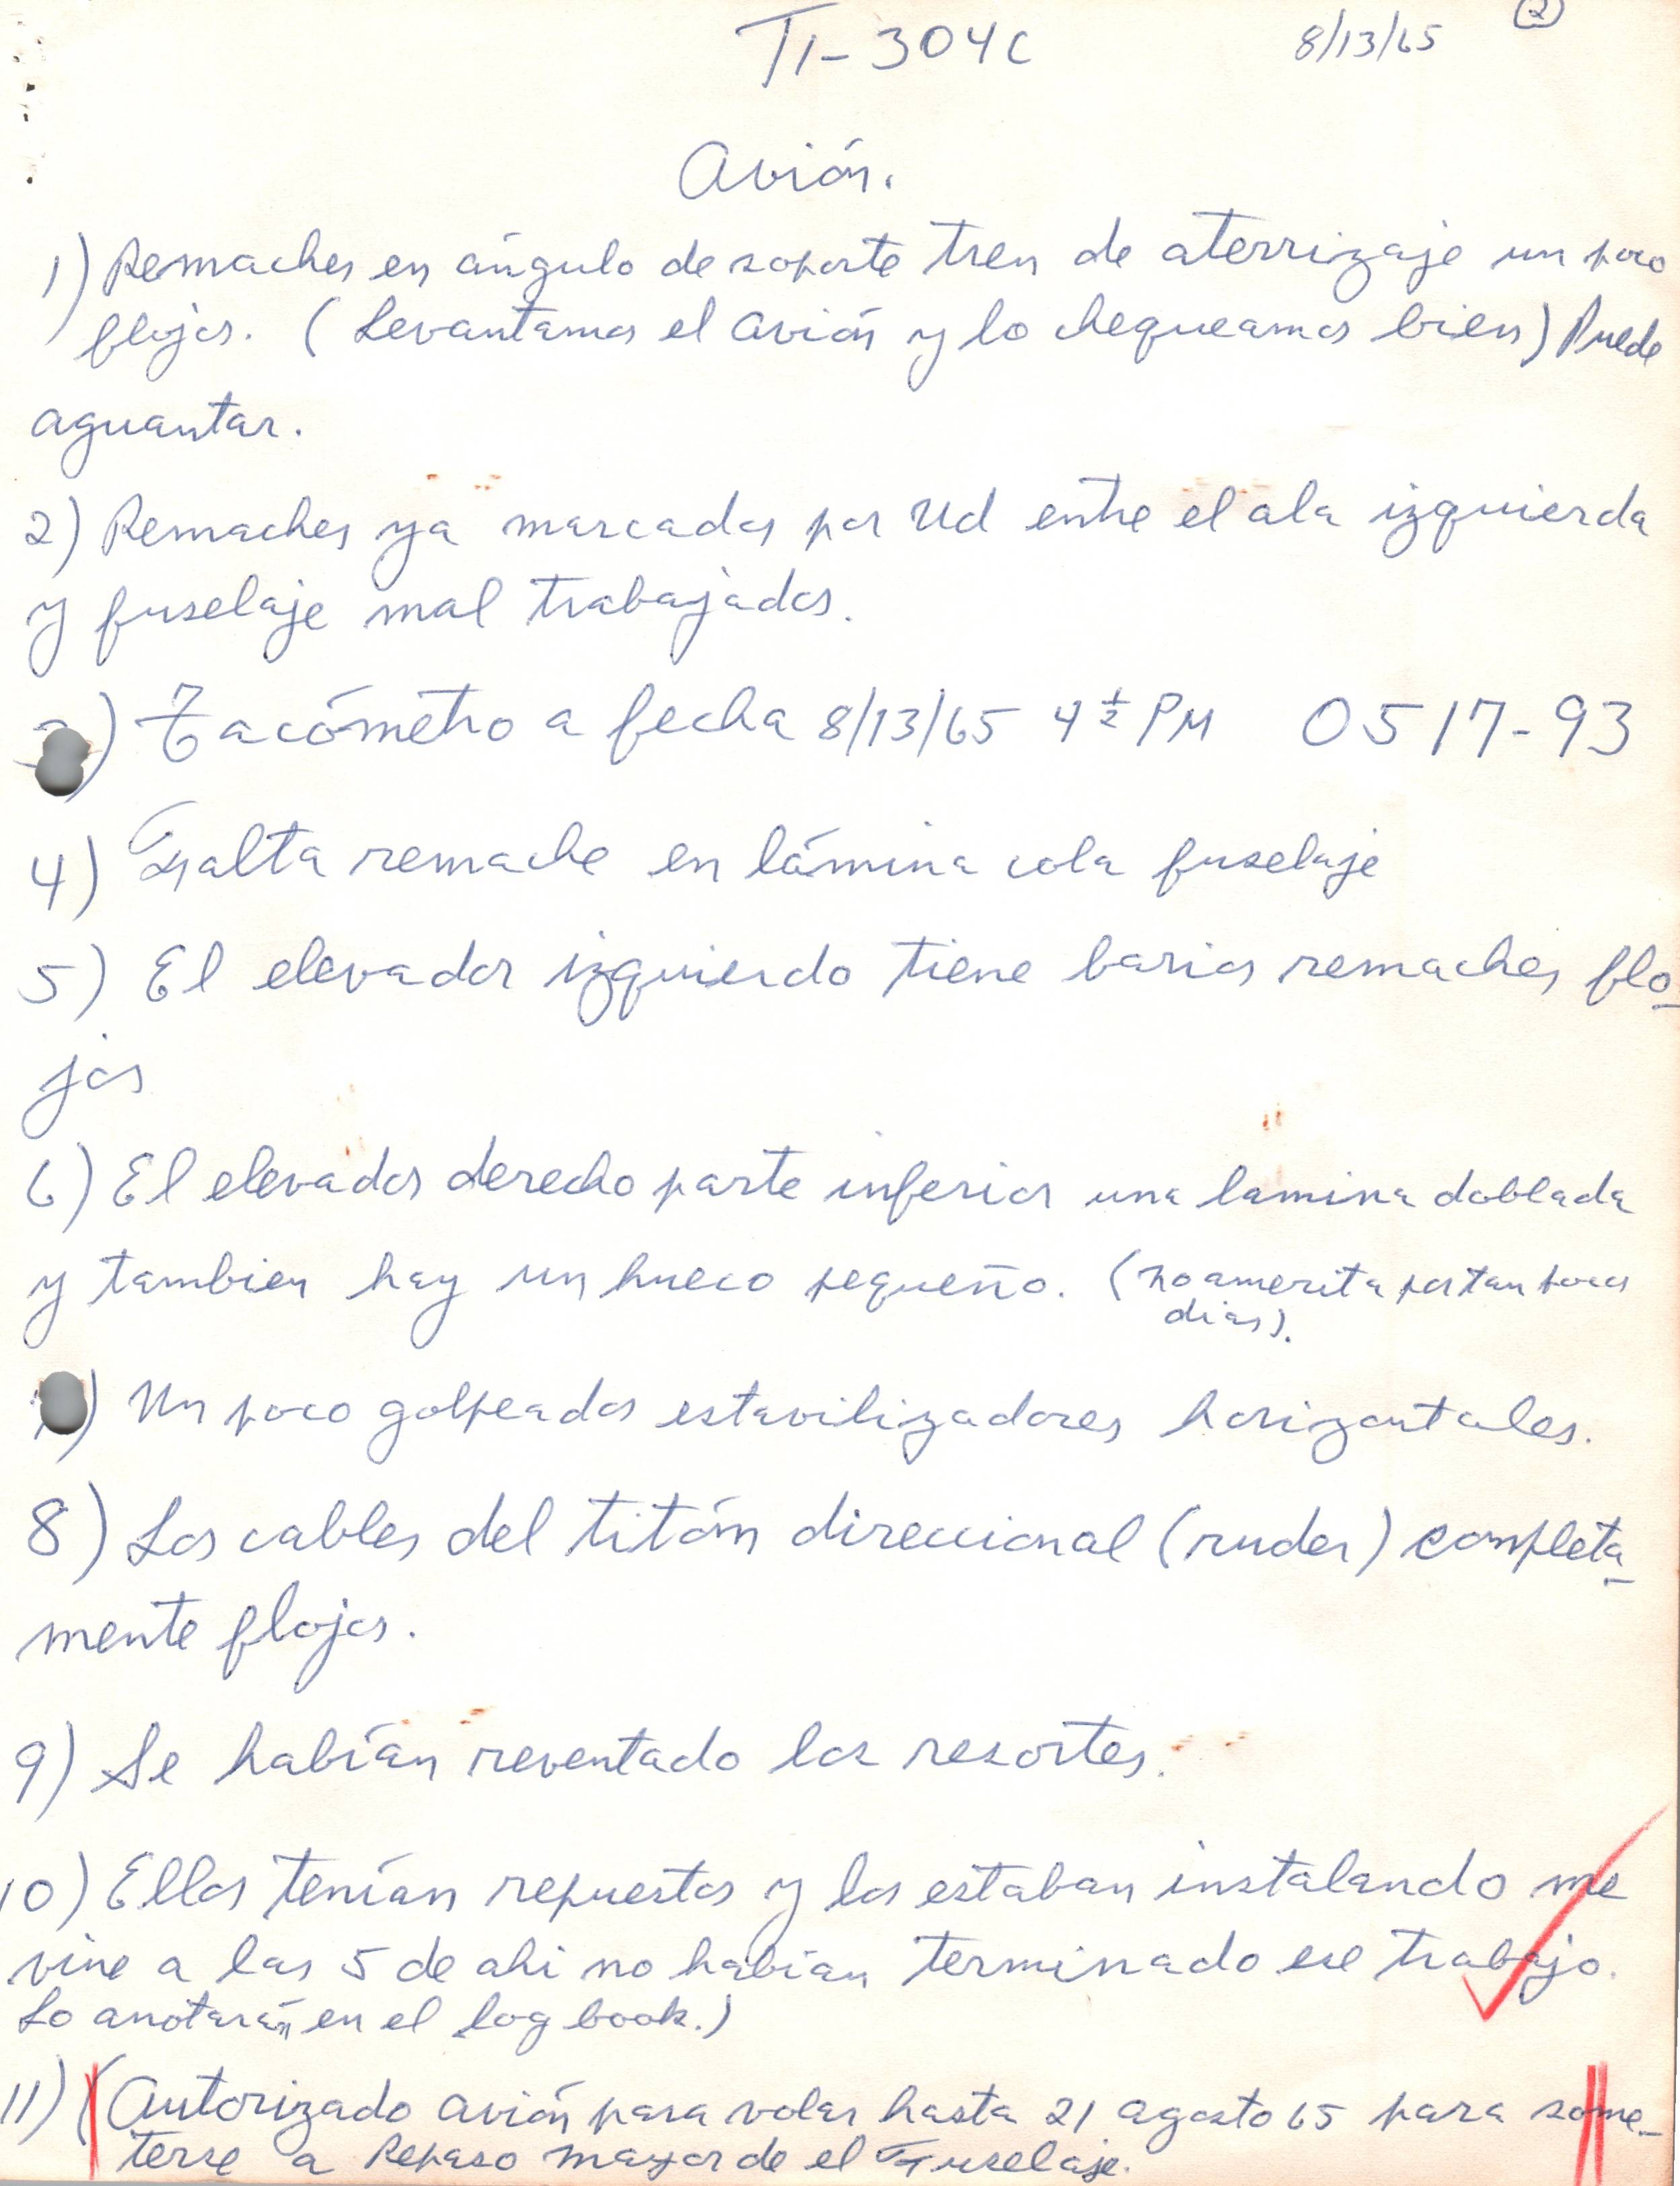 TI-304C 8/13/65 (2)
Avión.
1) Remaches en ángulo de soporte tren de aterrizaje un poco
flojos. (Levantamos el avión y lo chequeamos bien) Puede
aguantar.
2) Remaches ya marcados por Ud entre el ala izquierda
y fuselaje mal trabajados.
) Tacómetro a fecha 8/13/65 4 ½ PM 0517-93
4) Falta remache en lámina cola fuselaje
5) El elevador izquierdo tiene barios remaches flo-
jos
6) El elevador derecho parte inferior una lamina doblada
y tambien hay un hueco pequeño. (no amerita por tan pocos
dias).
) Un poco golpeados estavilizadores horizontales.
8) Los cables del titón direccional (ruder) completa-
mente flojos.
9) Se habían reventado los resortes.
10) Ellos tenían repuestos y los estaban instalando me
vine a las 5 de ahi no habían terminado ese trabajo.
Lo anotarán en el log book.)
11) (Autorizado avión para volar hasta 21 agosto 65 para some-
terse a Repaso mayor de el Fuselaje.